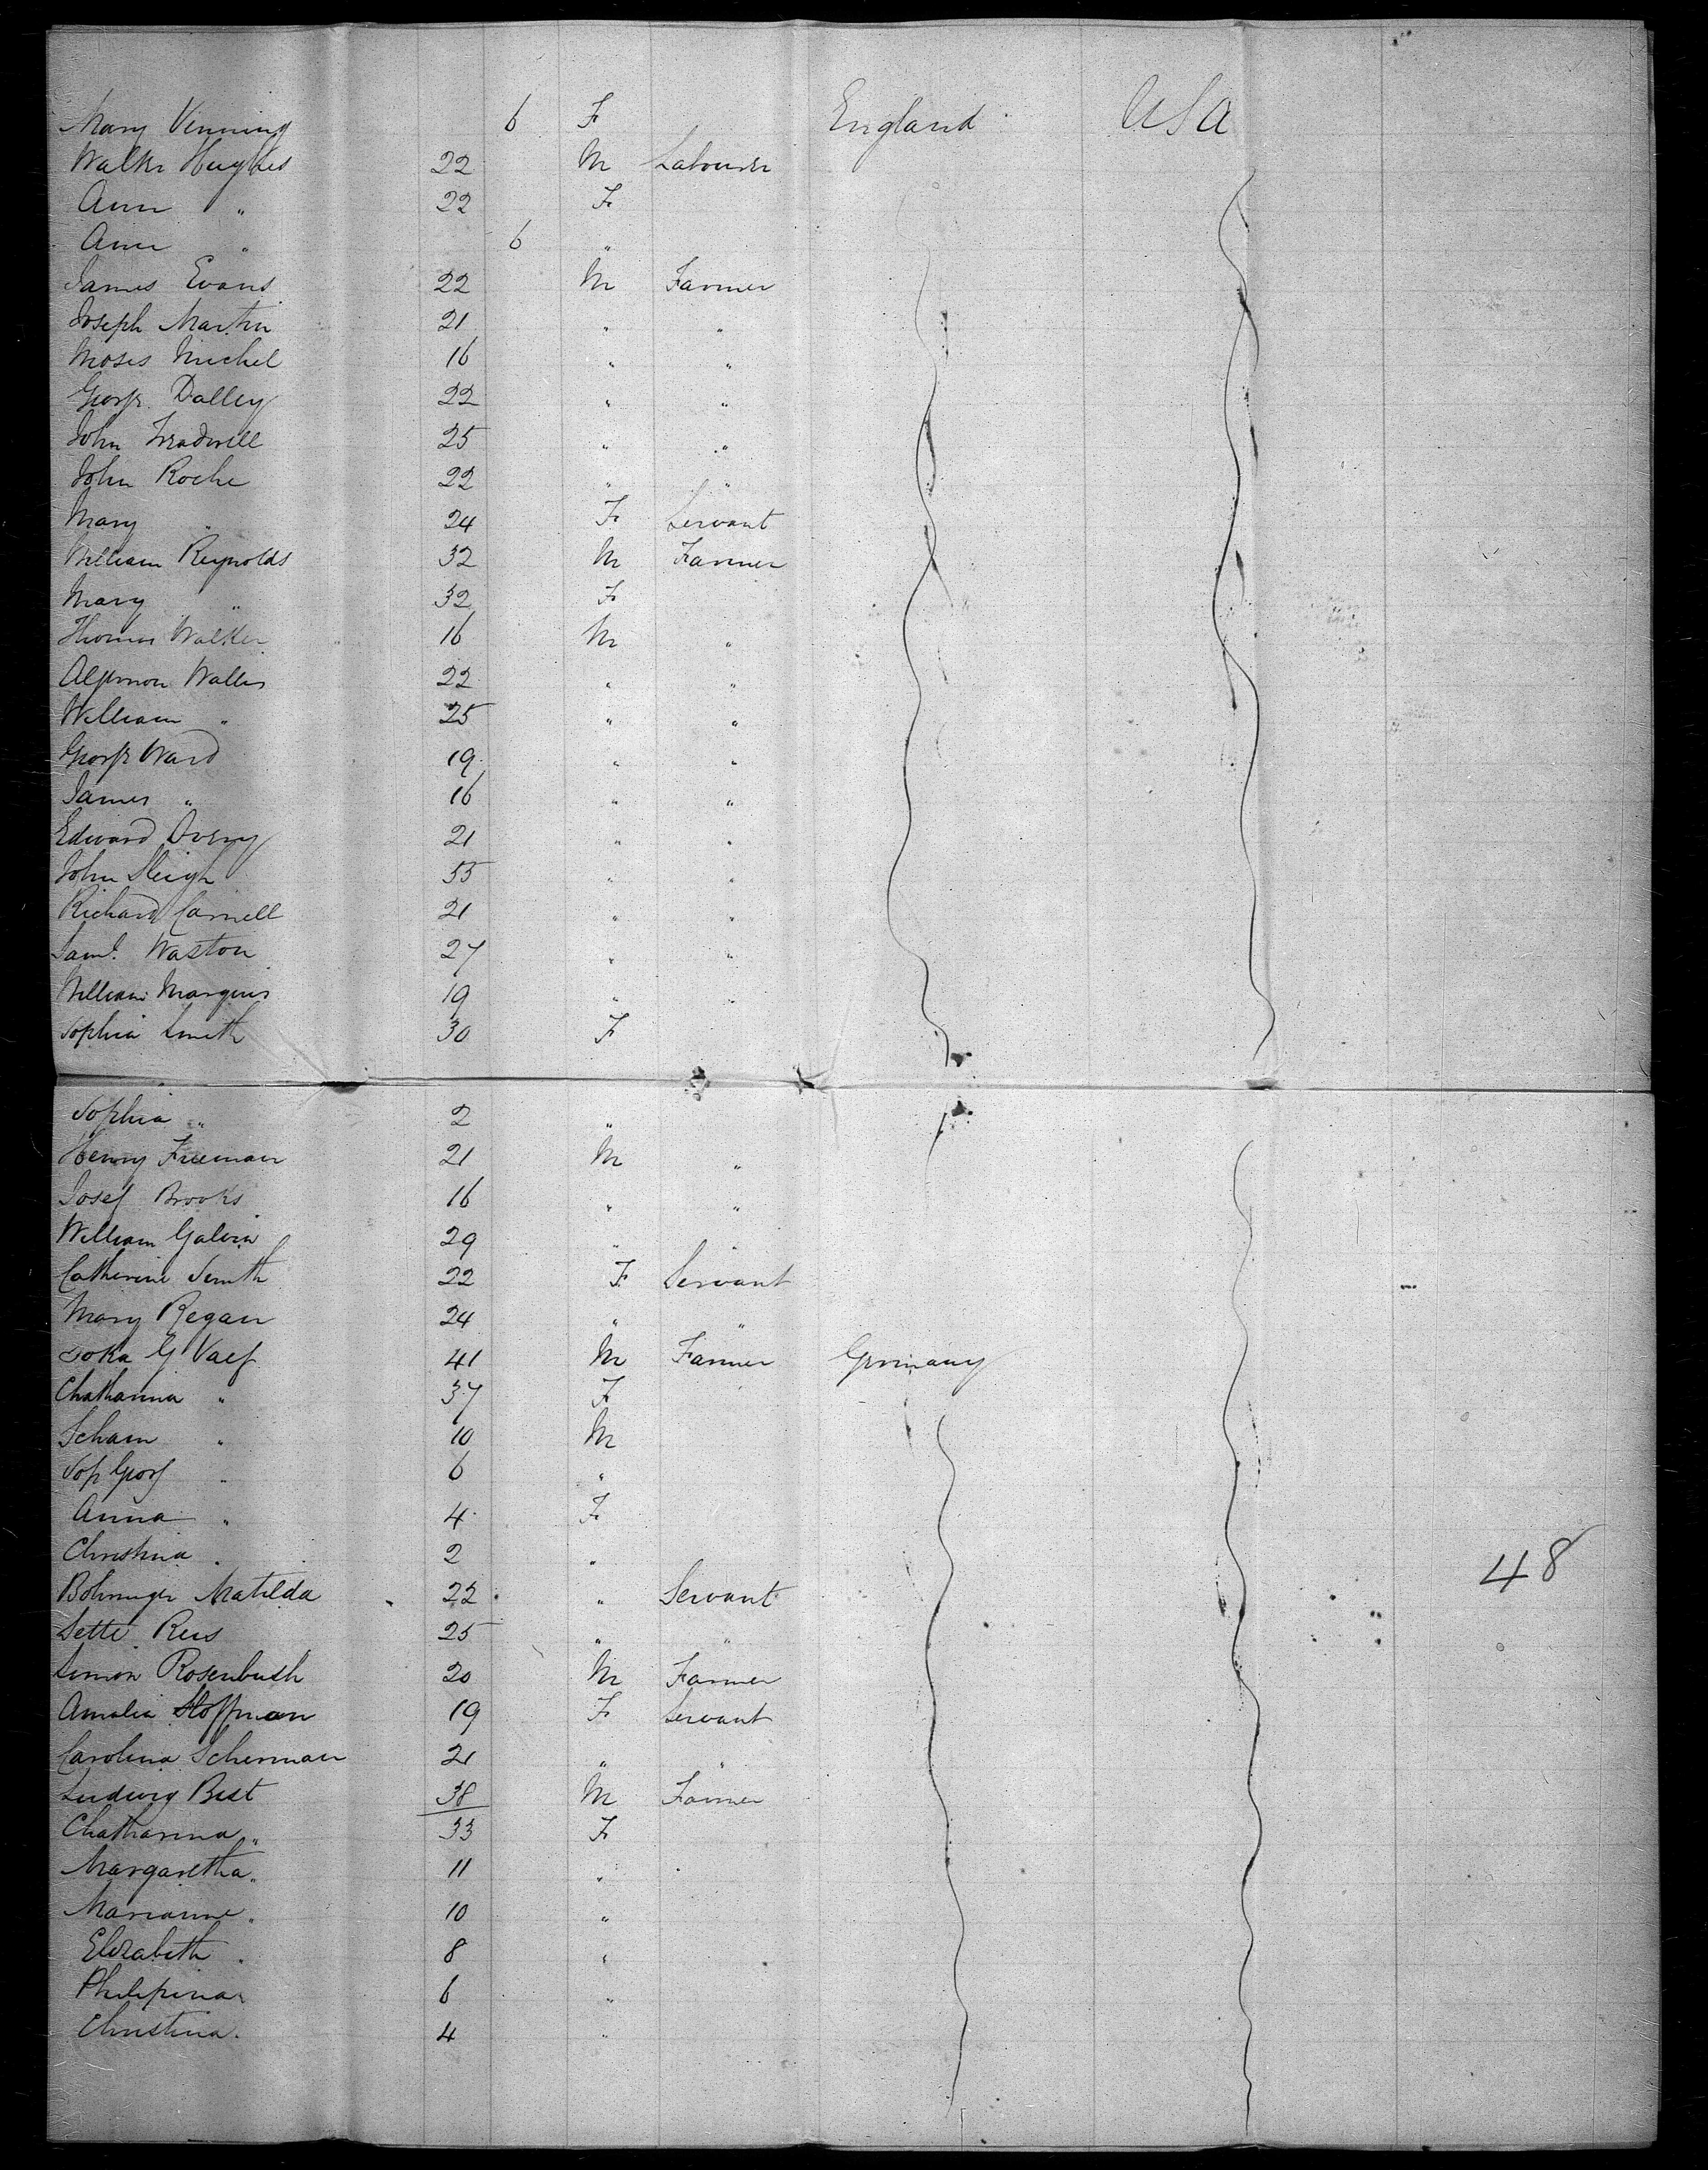 Mary Venning 6 F England USA
Walter Hughes 22 M Labourer
Ann " 22 F
Ann " 6 "
James Evans 22 M Farmer
Joseph Martin 21 " "
Moses Michel 16 " "
George Dalley 22 " "
John Treadwell 25 " "
John Roche 22 " "
Mary " 24 F Servant
William Reynolds 32 M Farmer
Mary " 32 F
Thomas Walker 16 M "
Algernon Waller 22 " "
William " 25 " "
George Ward 19 " "
James " 16 " "
Edward Avery 21 " "
John Sleigh 55 " "
Richard Carnell 21 " "
Saml. Waston 27 " "
William Marquis 19 " "
Sophia Smith 30 F
Sophia " 2 "
Henry Freeman 21 M "
Josef Brooks 16 " "
William Galvin 29 " "
Catherine Smith 22 F Servant
Mary Regan 24 " "
G Vaef 41 M Farmer Germany
Chatharina " 37 F
Scham " 10 M
6 "
Anna " 4 F
Christina " 2 "
48
Bohringer Matilda 22 " Servant
Sette Reis 25 " "
Simon Rosenbush 20 M Farmer
Amalia Hoffman 19 F Servant
Carolina Scherman 21 " "
Ludwig Best 38 M Farmer
Chatharina " 33 F
Margaretha " 11 "
Marianne " 10 "
Elizabeth " 8 "
Philipina " 6 "
Christina " 4 "